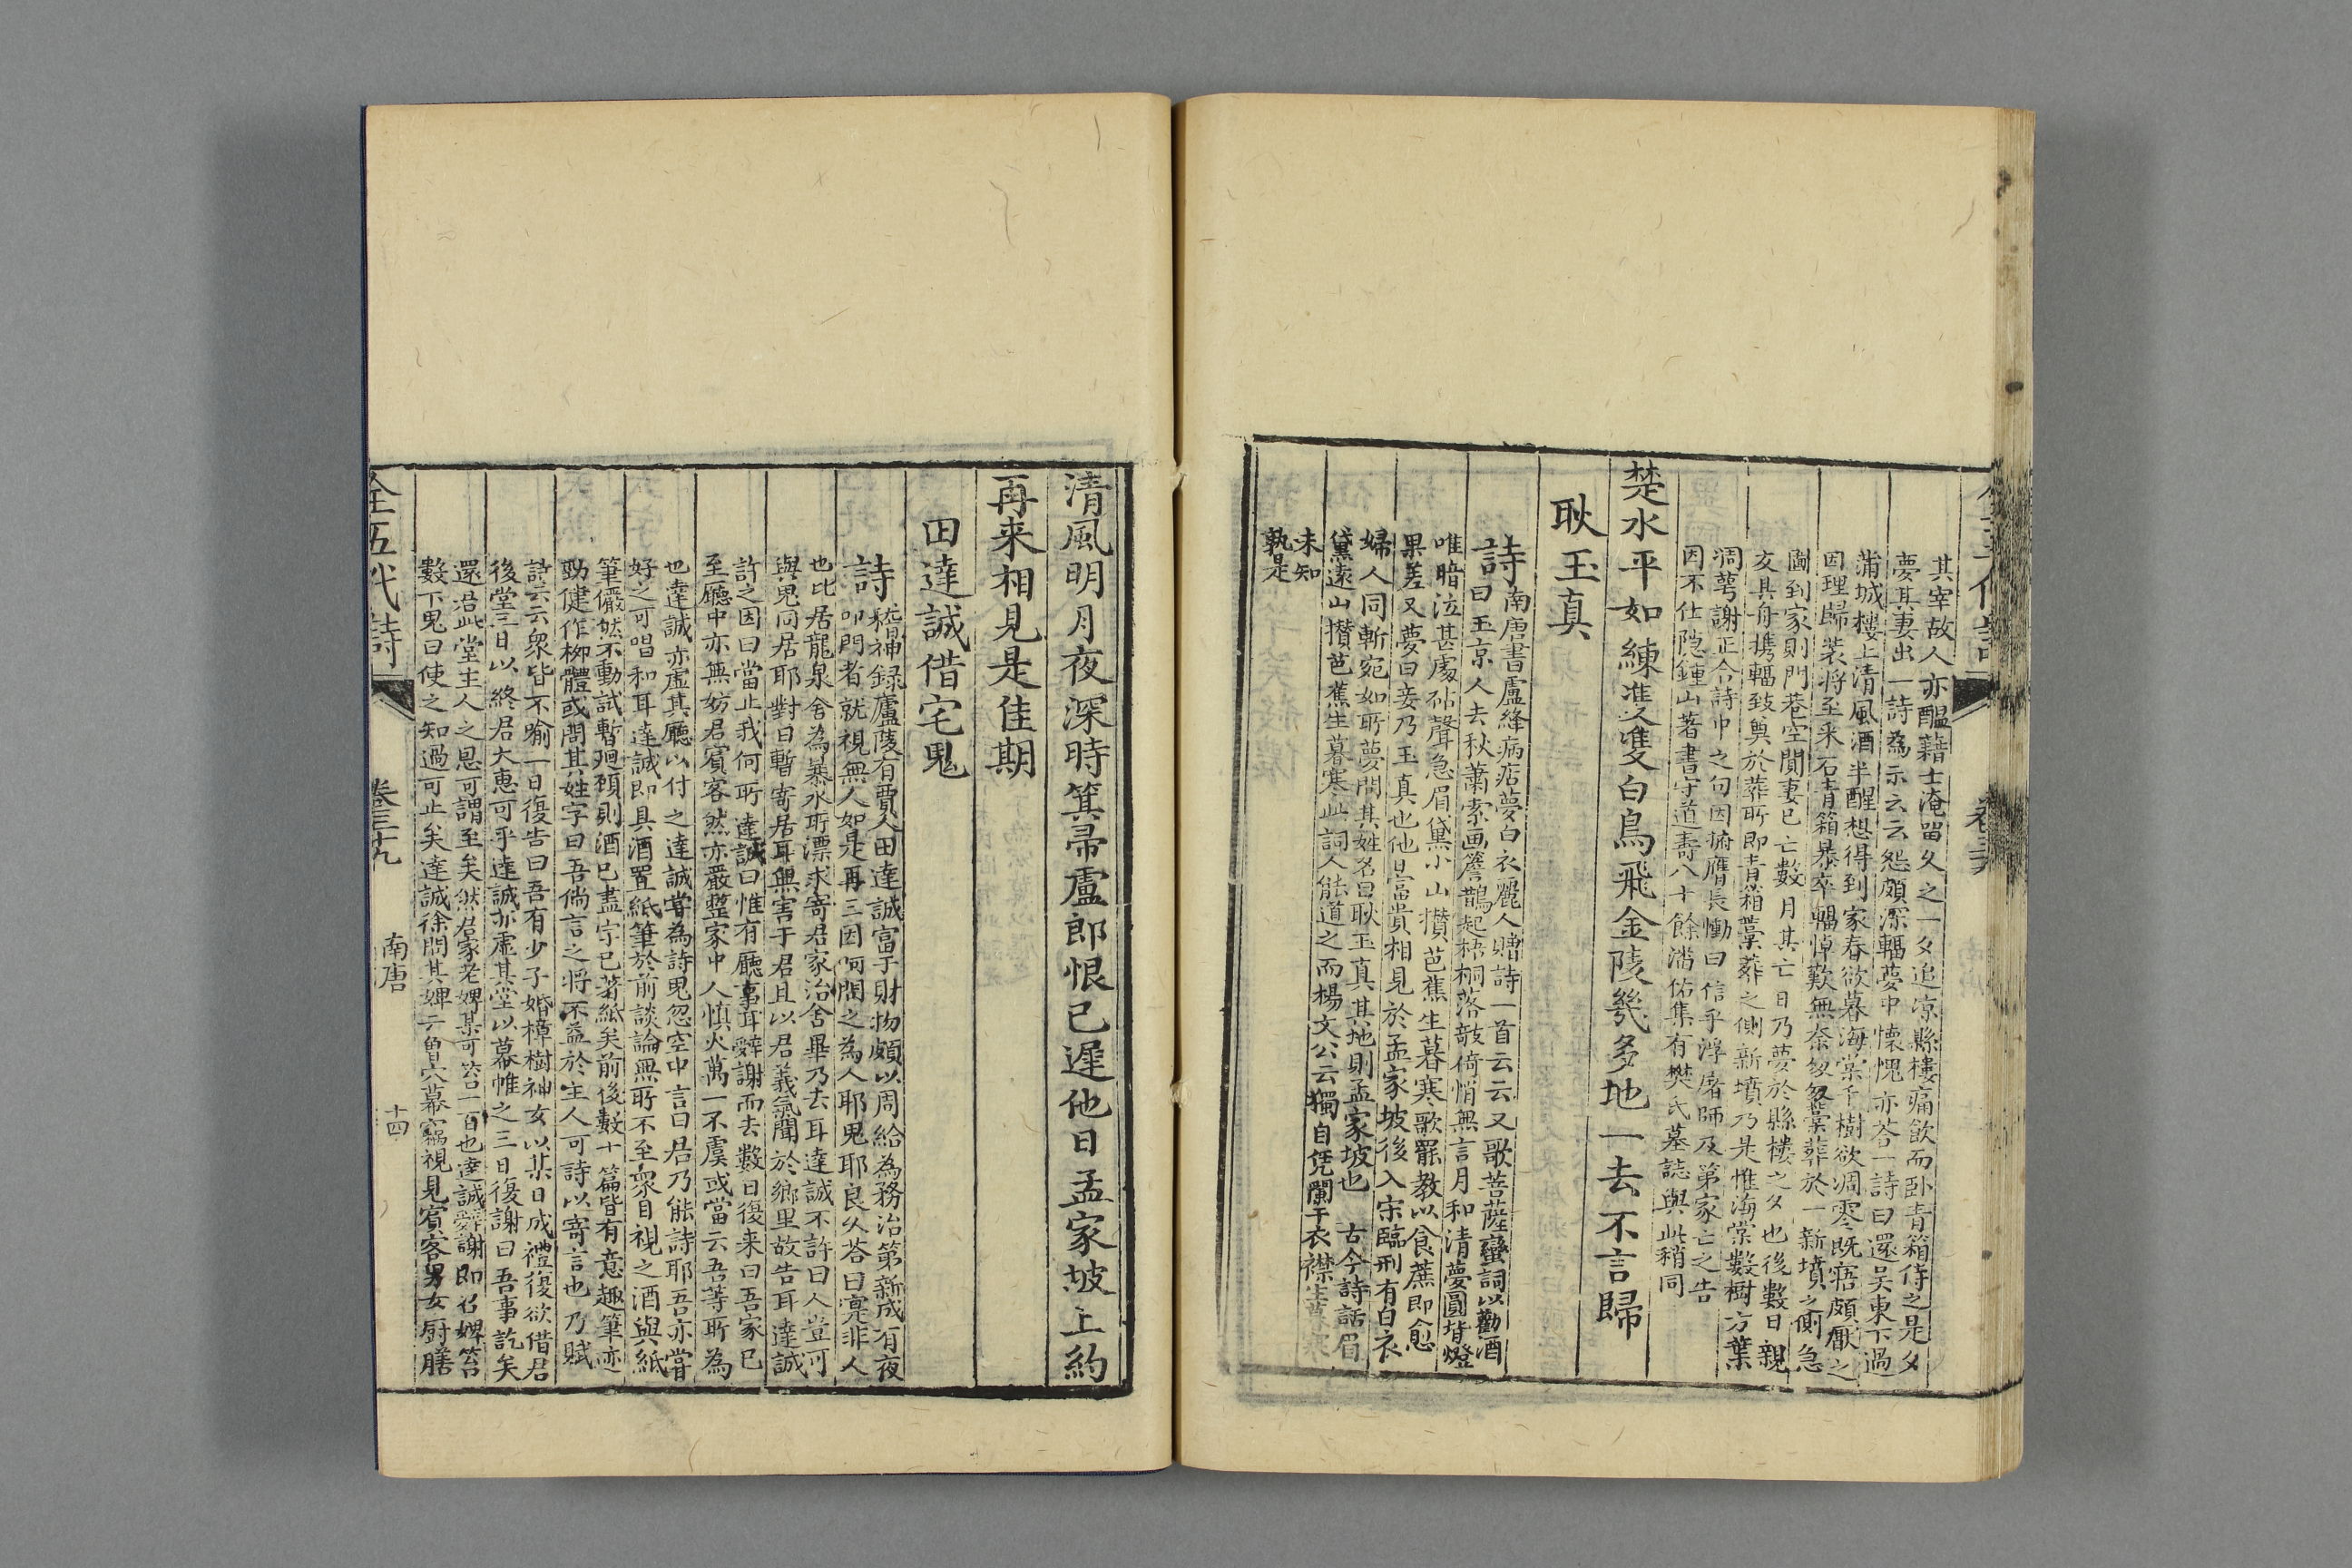 其宰故人亦醞藉士淹留久之一夕追涼縣樓痛飲而卧青箱侍之是夕
夢其妻出一詩爲示云云怨頗深輻夢中懷愧亦荅一詩曰還吴東下過
蒲城樓上清風酒半醒想得到家春欲暮海棠千樹欲凋零既寤頗厭之
因理歸装将至采石青箱暴卒輻悼歎無奈匆匆槀葬於一新墳之側急
圖到家則門巷空閴妻已亡數月其亡日乃夢於縣樓之夕也後數日親
友具舟携輻致奠於葬所即青箱槀葬之側新墳乃是惟海棠數樹方葉
凋萼謝正合詩中之句因搥膺長慟曰信乎浮屠師及第家亡之告
因不仕隐鍾山著書守道壽八十餘潘佑集有樊氏墓誌與此稍同
楚水平如練準雙白鳥飛金陵幾多地一去不言歸
耿玉真
詩南唐書盧絳病痁夢白衣麗人贈詩一首云云又歌菩薩蠻詞以勸酒
曰玉京人去秋蕭索画簷鵲起梧桐落敧倚悄無言月和清夢圓背燈
唯暗泣甚處砧聲急眉黛小山攅芭蕉生暮寒歌罷教以食蔗即愈
果差又夢曰妾乃玉真也他日富貴相見於孟家坡後入宋臨刑有白衣
婦人同斬宛如所夢問其姓名曰耿玉真其地則孟家坡也 古今詩話眉
黛遠山攅芭蕉生暮寒此詞人能道之而楊文公云獨自凭闌干衣襟生暮寒
未知
孰是
清風明月夜深時箕帚盧郎恨已遲他日孟家坡上約
再来相見是佳期
田達誠借宅鬼
詩稽神録廬陵有賈人田達誠富于財物頗以周給為務治第新成有夜
叩門者就視無人如是再三因呵問之為人耶鬼耶良久荅曰寔非人
也比居龍泉舍為暴水所漂求寄君家治舍畢乃去耳達誠不許曰人豈可
與鬼同居耶對曰暫寄居耳無害于君且以君義氣聞於鄉里故告耳達誠
許之因曰當止我何所達誠曰惟有廳事耳辤謝而去數日復来曰吾家已
至廳中亦無妨君賓客然亦嚴整家中人慎火萬一不虞或當云吾等所為
也達誠亦虚其廳以付之達誠甞為詩鬼忽空中言曰君乃能詩耶吾亦甞
好之可唱和耳達誠即具酒置紙筆於前談論無所不至衆目視之酒與紙
筆儼然不動試暫廻顧則酒已盡字已著紙矣前後數十篇皆有意趣筆迹
勁健作栁體或問其姓字曰吾倘言之将不益於主人可詩以寄言也乃賦
詩云云衆皆不喻一日復告曰吾有少子婚樟樹神女以某日成禮復欲借君
後堂三日以終君大惠可乎達誠亦虛其堂以幕帷之三日復謝曰吾事訖矣
還君此堂主人之恩可謂至矣然君家老婢某可笞一百也達誠辤謝即召婢笞
數下鬼曰使之知過可止矣達誠徐問其婢云曽穴幕竊視見賓客男女厨膳
全五代詩
卷三十九
南唐
十四